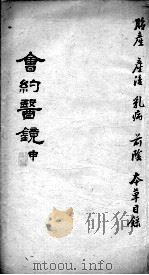 胎產 產法 乳病 前陰 本草目錄
會約醫鏡 申